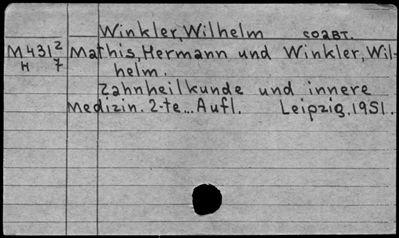 Winkler, Wilhelm соавт.
M431 2 Mathis, Hermann und Winkler, Wil-
H 7 helm.
Zahnheilkunde und innere
Medizin. 2-te... Aufl. Leipzig, 1951.